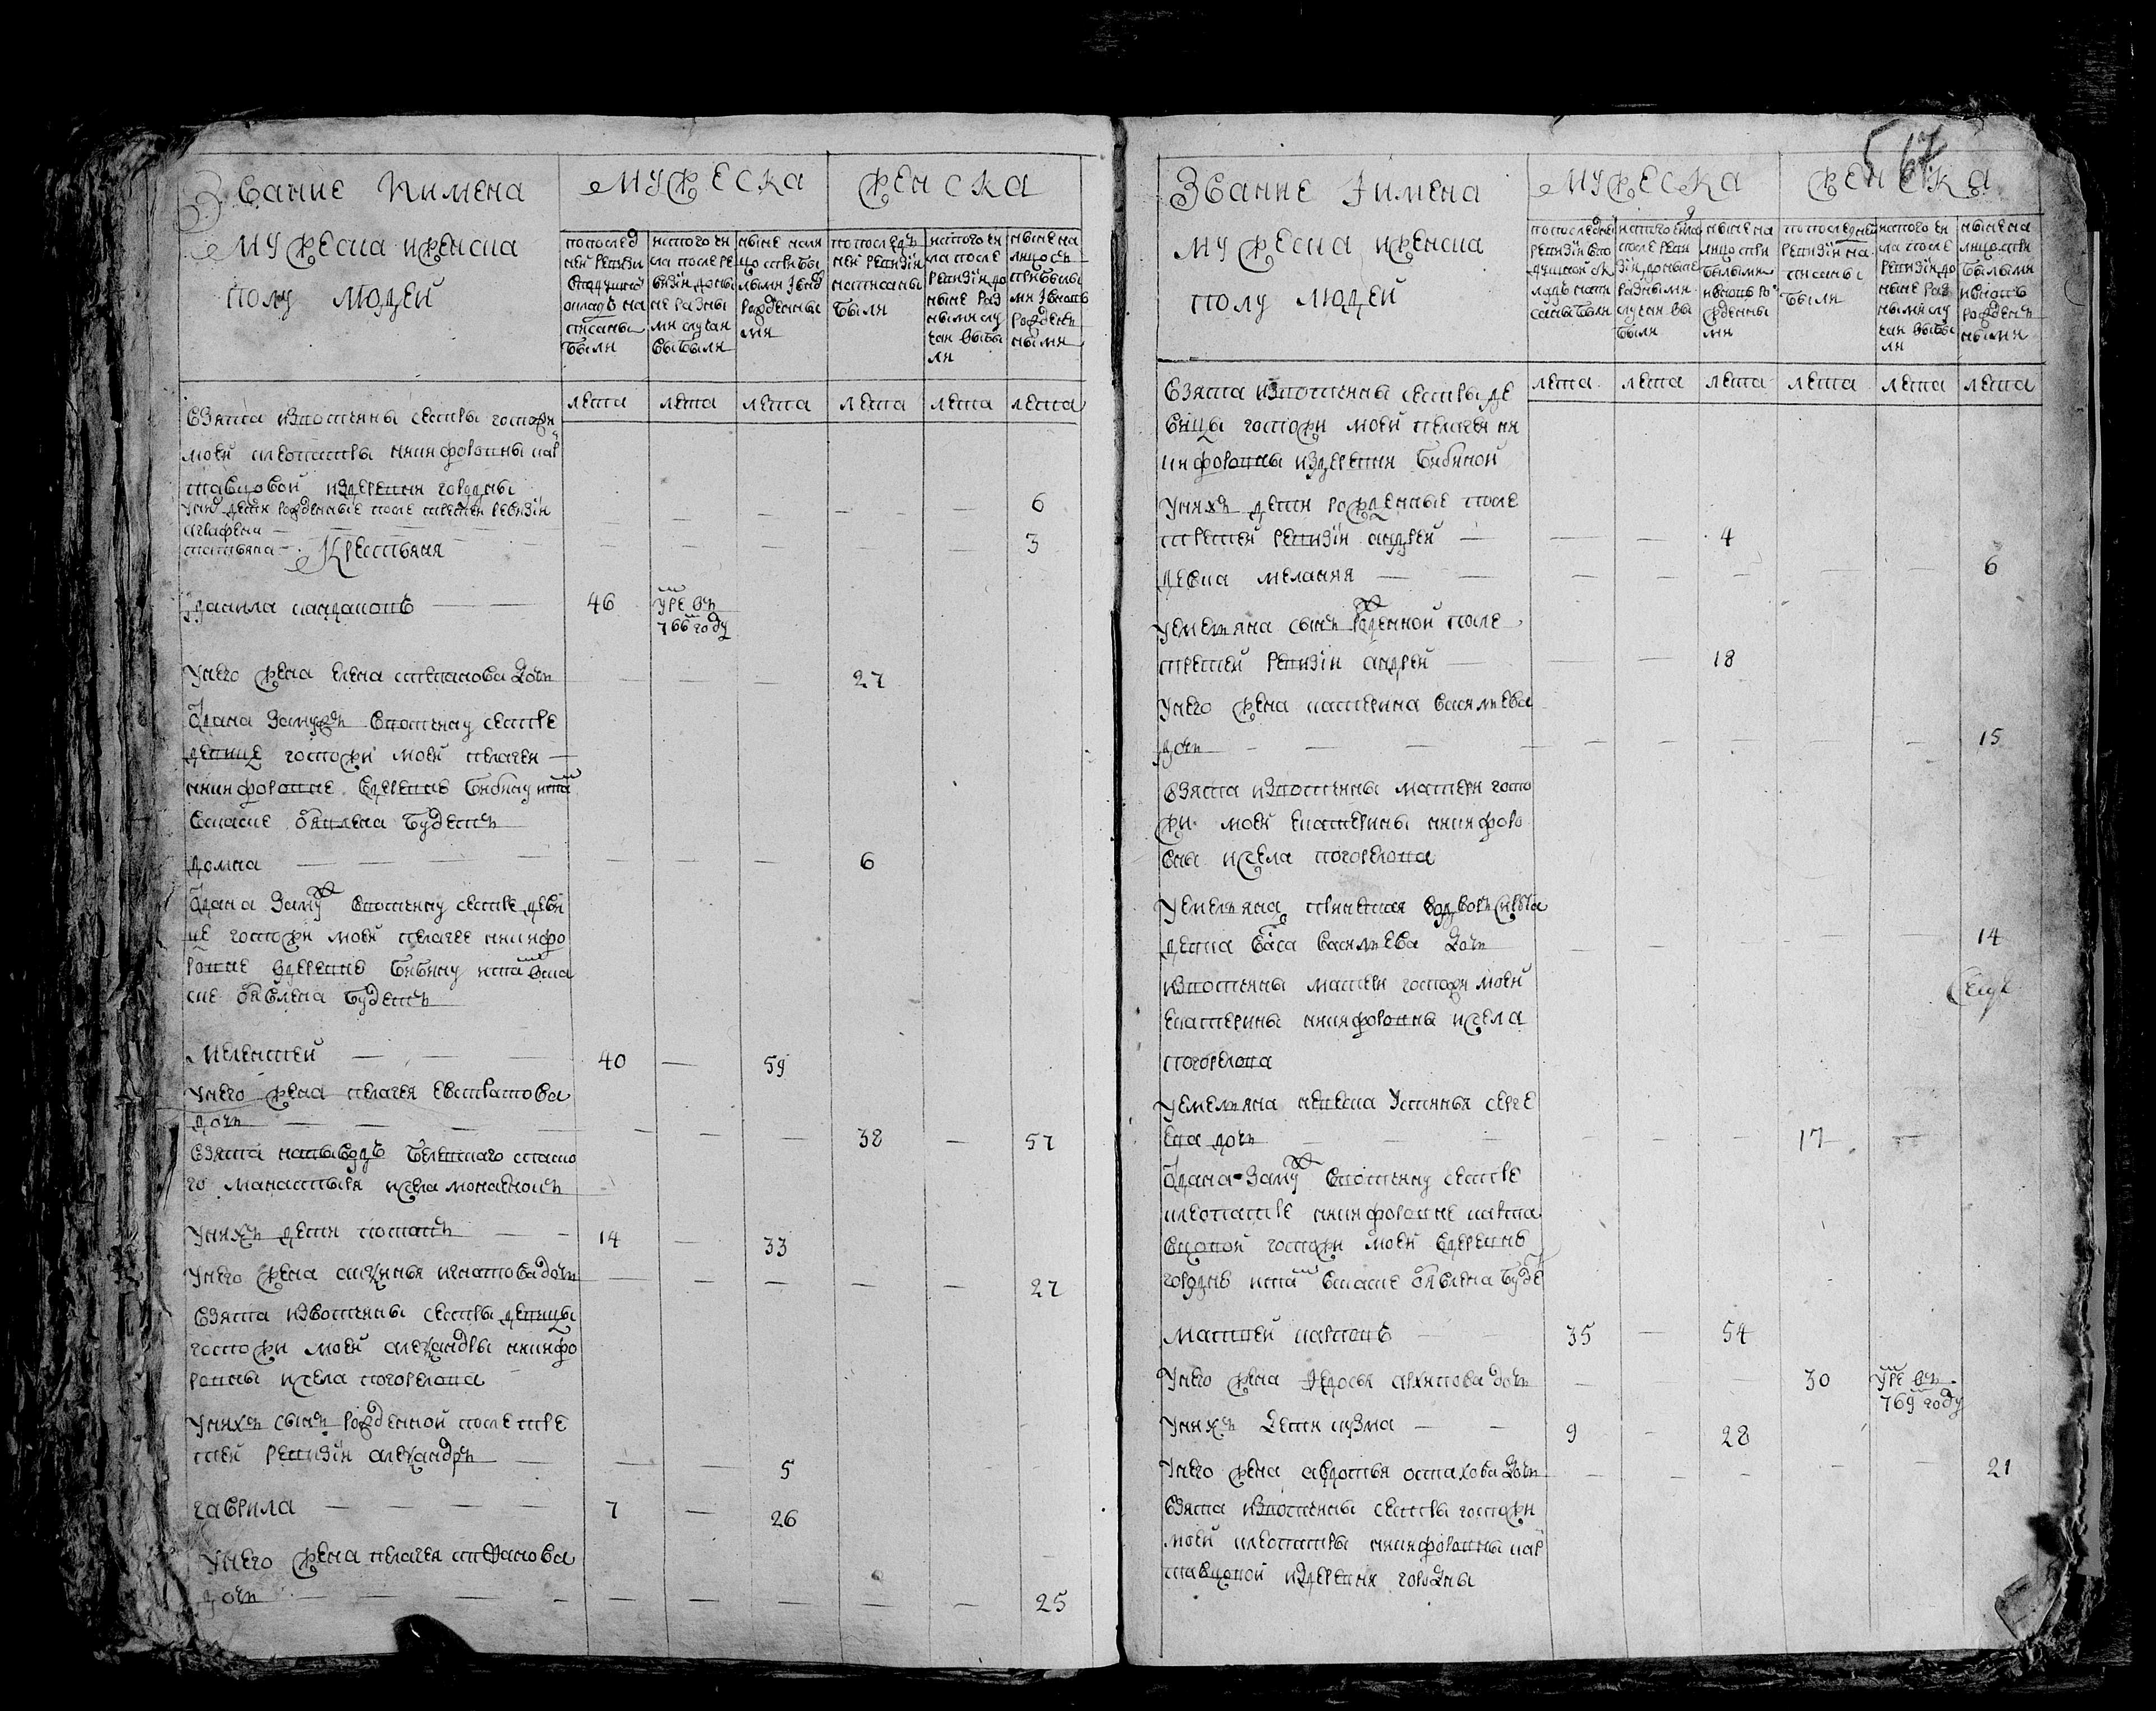 Звание и имена
мужеска и женска
полу людей
мужеска
женска
по послед
ней ревизи
в подушной
окладъ на
писаны
были
ис того чи
сла после ре
визіи до ны
не разны
ми случаи
выбыли
ныне на ли
цо с прибы
лыми и вно
рожденны
ми
по последн
ней ревизіи
написаны
были
ис того чи
сла после
ревизіи до
ныне раз
ными слу
чаи выбы
ли
ныне на
лицо съ
прибылы
ми и вновь
рожден
ными
лета лета лета лета лета лета
взята из вотчины сестры госпожи
моей клеопатры никифоровны кар
тавцовой из деревни городны
у них дети рожденные после третей ревизіи
агафья 6
татьяна 3
Крестьяня
Данила кандаковъ 46 умре въ
766 году
у него жена елена степанова дочь 27
отдана замужъ в вотчину сестре
девице госпоже моей пелагеи
никифоровне в деревню бибину и та
в сказке объявлена будетъ
домна 6
отдана замуж в вотчину сестре деви
це госпожи моей пелагее никифо
ровне в деревню бибину и та в сказ
ке объявлена будетъ
Мелентей 40 59
у него жена пелагея евстратова
дочь 38 57
взята на выводъ белевского спаско
го манастыря из села монаенокъ
у нихъ дети потапъ 14 33
у него жена аксинья игнатова дочь 27
взята из вотчины сестры девицы
госпожи моей александры никифо
ровны из села погорелова
у нихъ сынъ рожденной после тре
тей ревизіи александръ 5
гаврила 7 26
у него жена пелагея степанова
дочь 25
567
Звание и имена
мужеска и женска
полу людей
мужеска
женска
по последней
ревизіи в по
душной ок
ладъ напи
саны были
ис того числа
после реви
зіи до ныне
разными
случаи вы
были
ныне на
лицо с при
былыми
и вновь ро
жденны
ми
по последней
ревизіи на
писаны
были
ис того чи
сла после
ревизіи до
ныне раз
ными слу
чаи выбы
ли
ныне на
лицо с при
былыми
и вновь
рожденъ
ными
лета лета лета лета лета лета
взята из вотчины сестры де
вицы госпожи моей пелагеи ни
кифоровны из деревни бибиной
у нихъ дети рожденные после
третей ревизіи андрей 4
девка мелания 6
у емельяна сынъ рожденной после
третей ревизіи андрей 18
у него жена катерина васильева
дочь 15
взята из вотчины матери госпо
жи моей екатерины никифоро
вны из села погорелова
у емельяна принетая во дворъ сирота
девка васа васильева дочь 14
из вотчины матери госпожи моей
екатерины никифоровны из села
погорелова
у емельяна невеска устинья серге
ева дочь 17
отдана замуж в вотчину сестре
клеопатре никифоровне карта
вцовой госпожи моей в деревню
городню и та в сказке объявлена буде
Матвей карповъ 35 54
у него жена федосья архипова дочь 30 умре въ
769 году
у нихъ дети кузма 9 28
у него жена авдотья остахова дочь 21
взята из вотчины сестры госпожи
моей клеопатры никифоровны кар
тавцовой из деревни городны